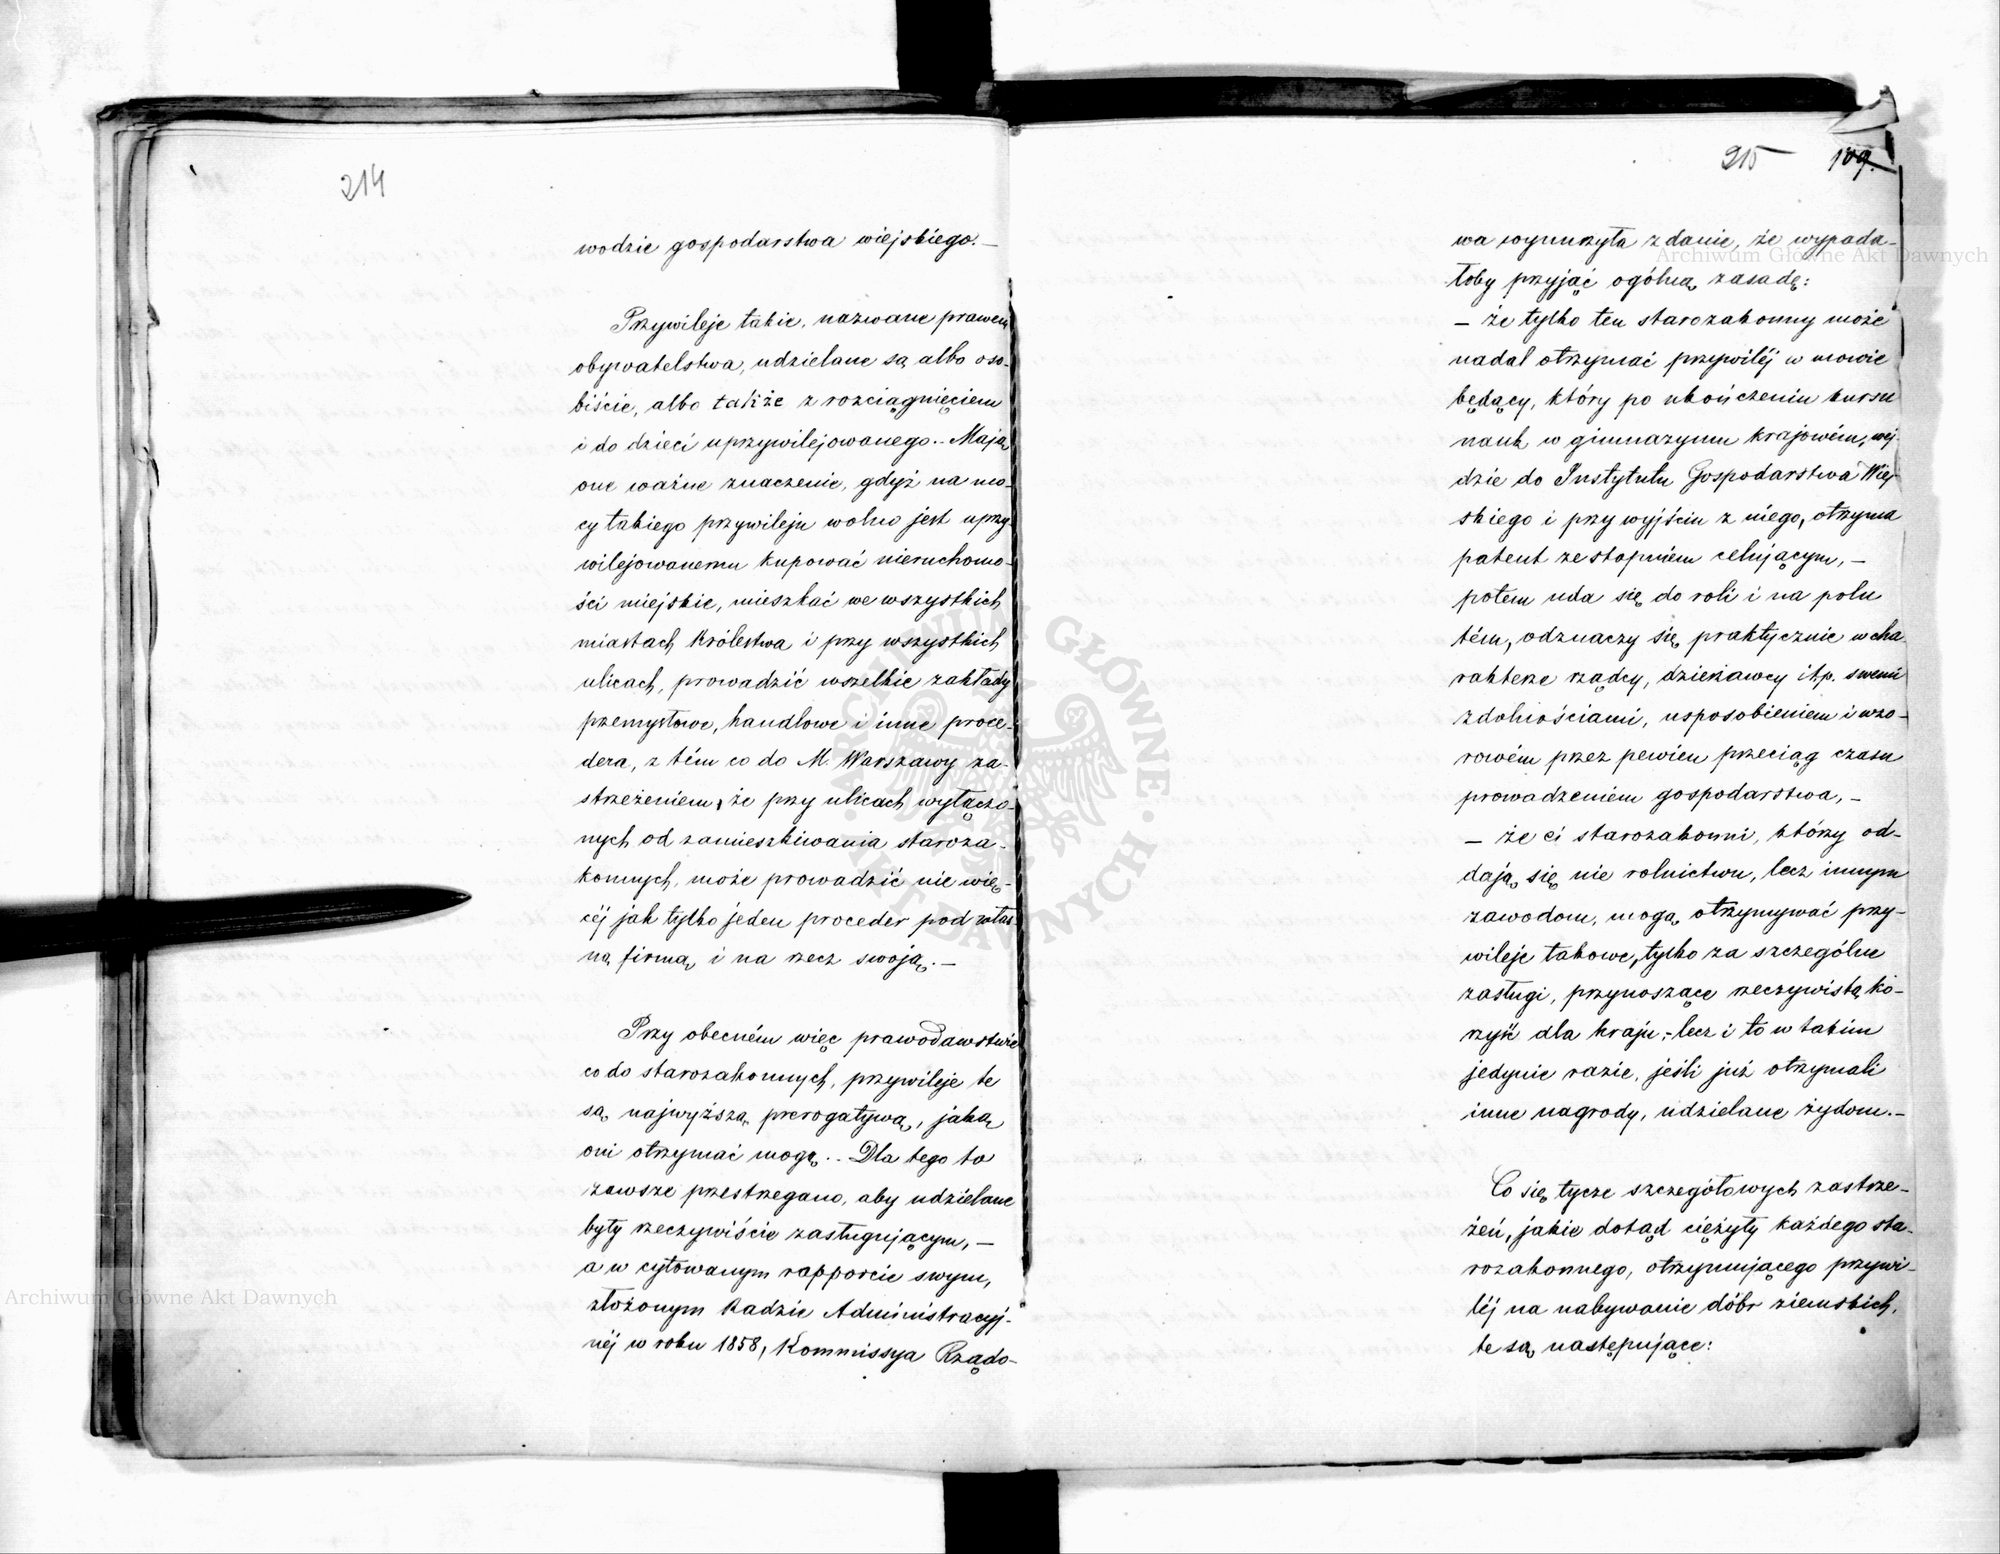 214
wodzie gospodarstwa wiejskiego.—
Przywileje takie, nazwane prawem
obywatelstwa, udzielane są albo oso-
biście, albo także z rozciągnięciem
i do dzieci uprzywilejowanego.- Mają
one ważne znaczenie, gdyż na mo-
cy takiego przywileju wolno jest uprzy-
wilejowanemu kupować nieruchomo-
ści miejskie, mieszkać we wszystkich
miastach Królestwa i przy wszystkich
ulicach, prowadzić wszelkie zakłady
przemysłowe, handlowe i inne proce-
dera, z tém co do M. Warszawy za-
strzeżeniem, że przy ulicach wyłączo-
nych od zamieszkiwania staroza-
konnych, może prowadzić nie wię-
céj jak tylko jeden proceder pod włas-
ną firmą i na rzecz swoją.—
Przy obecném więc prawodawstwie
co do starozakonnych, przywileje te
są najwyższą prerogatywą, jaką
oni otrzymać mogą.- Dla tego to
zawsze przestrzegano, aby udzielane
były rzeczywiście zasługującym,—
a w cytowanym rapporcie swym,
złożonym Radzie Administracyj-
néj w roku 1858, Kommissya Rządo-
215 109.
wa wynurzyła zdanie, że wypada-
łoby przyjąć ogólną zasadę:
— że tylko ten starozakonny może
nadal otrzymać przywiléj w mowie
będący, który po ukończeniu kursu
nauk w gimnazyum krajowém, wej-
dzie do Instytutu Gospodarstwa Wiej-
skiego i przy wyjściu z niego, otrzyma
patent ze stopniem celującym,—
potem uda się do roli i na polu
tém, odznaczy się praktycznie w cha-
rakterze rządcy, dzierżawcy itp. swemi
zdolnościami, usposobieniem i wzo-
rowém przez pewien przeciąg czasu
prowadzeniem gospodarstwa,—
— że ci starozakonni, którzy od-
dają się nie rolnictwu, lecz innym
zawodom, mogą otrzymywać przy-
wileje takowe, tylko za szczególne
zasługi, przynoszące rzeczywistą ko-
rzyść dla kraju;- lecz i to w takim
jedynie razie, jeśli już otrzymali
inne nagrody, udzielane żydom.—
Co się tycze szczegółowych zastrze-
żeń, jakie dotąd ciężyły każdego sta-
rozakonnego, otrzymującego przywi-
léj na nabywanie dóbr ziemskich,
te są następujące:
Archiwum Główne Akt Dawnych
Archiwum Główne Akt Dawnych
ARCHIWUM GŁÓWNE · AKT DAWNYCH ·